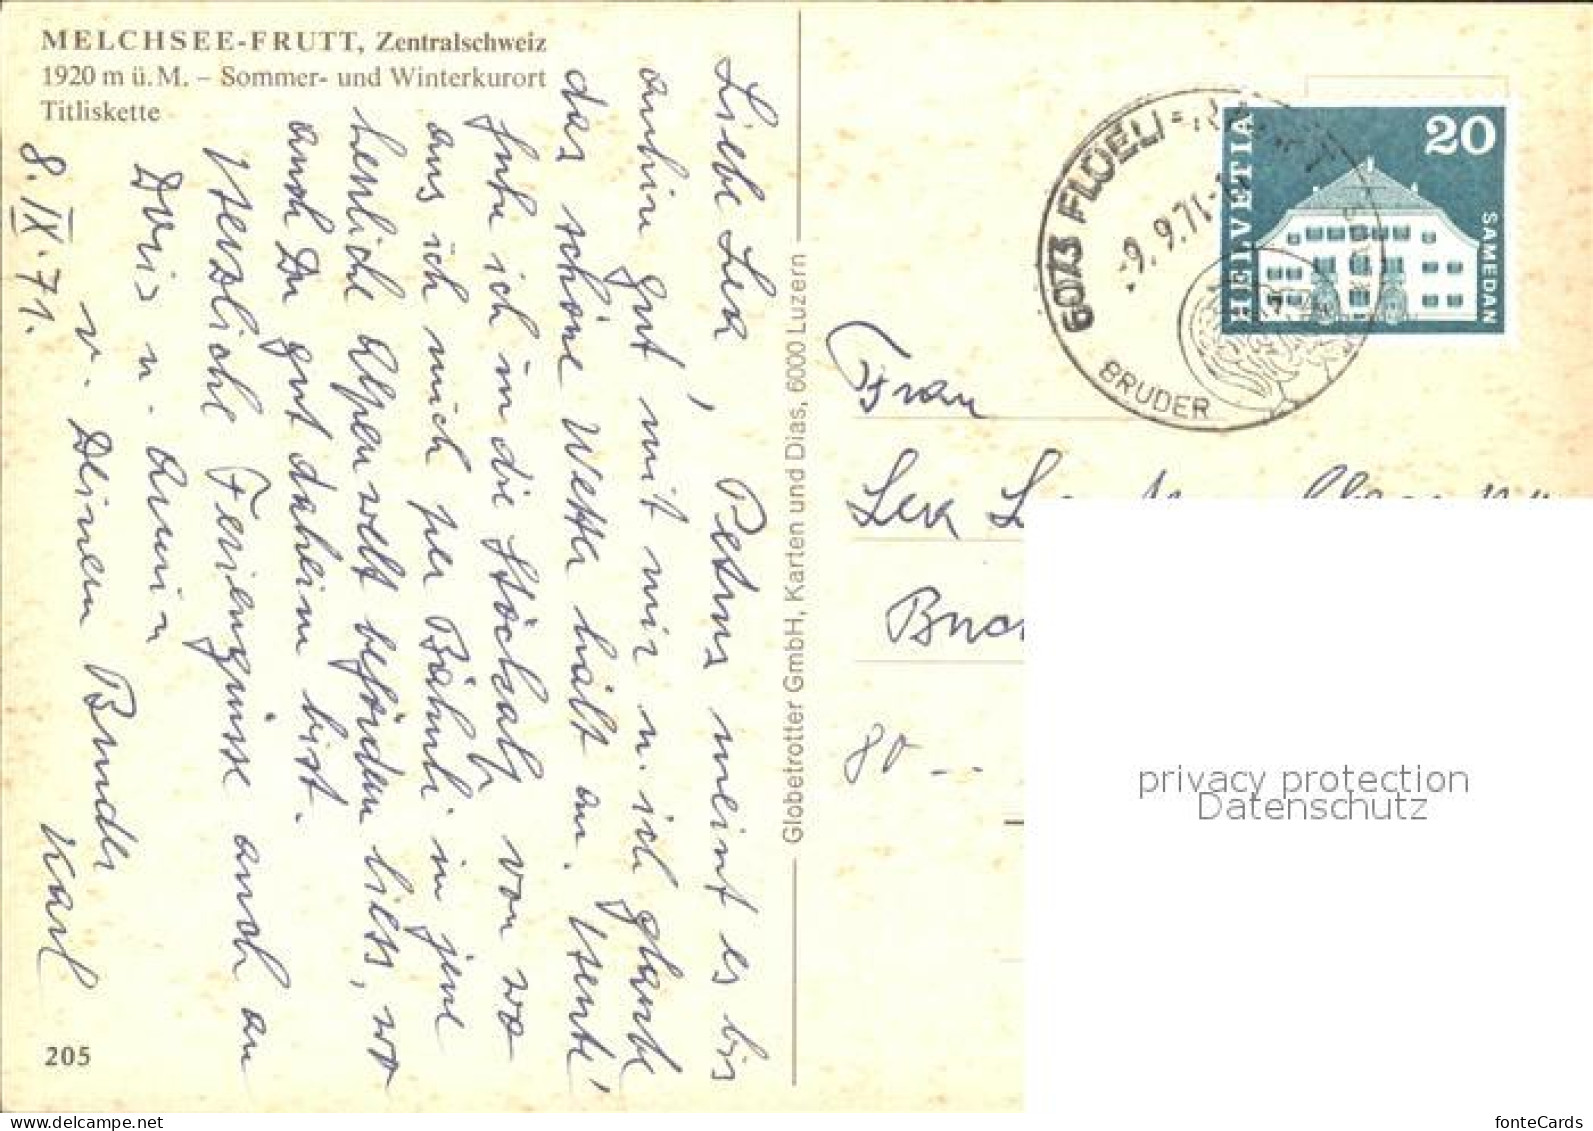 MELCHSEE-FRUTT, Zentralschweiz
1920 m ü. M. – Sommer- und Winterkurort
Titliskette
Liebe Lea, Petrus meint es bis
anhin gut mit mir u. ich glaube
das schöne Wetter hält an. Heute
fuhr ich in die Stöckalp von wo
aus ich mich per Bähnli in jene
herrliche Alpenwelt befördern liess, wo
auch Du gut daheim bist.
Herzliche Feriengrüsse auch an
Doris u. Armin
v. Deinem Bruder
Karl
8. IX. 71.
205
Globetrotter GmbH, Karten und Dias, 6000 Luzern
6073 FLUELI-RANFT
-9. 9.71-
BRUDER
HELVETIA
20
SAMEDAN
Frau
Lea
80
privacy protection
Datenschutz
www.delcampe.net
fonteCards